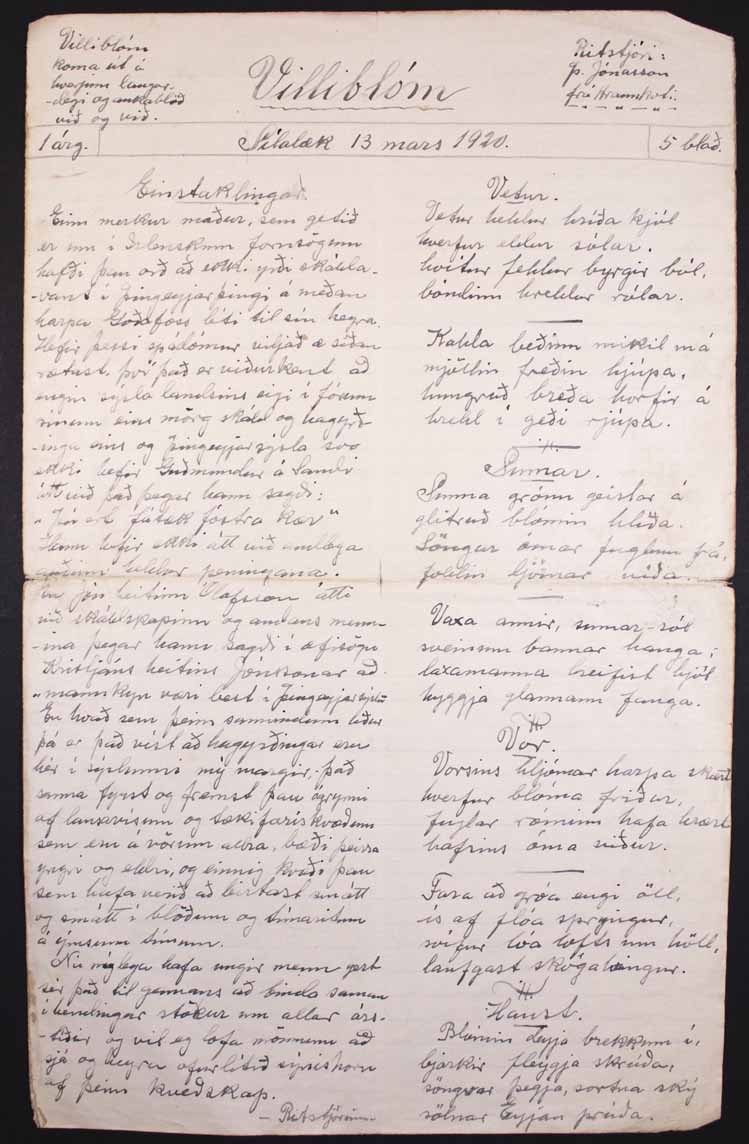 Villiblóm
koma út á
hverjum laugar-
-degi og aukablöð
við og við.
Villiblóm
Ritstjóri:
Þ. Jónasson
frá Hraunkoti.
1 árg.
Sílalæk 13 mars 1920.
5 blað.
Einstaklingar
Einn merkur maður, sem getið
er um í Íslenskum fornsögum
hafði þau orð að ekki yrði skálda-
-vant í Þingeyjarþingi á meðan
harpa Goðafoss léti til sín heyra.
Hefir þessi spádómur viljað æ síðan
rætast, því það er viðurkent að
engin sýsla landsins eigi í fórum
sínum eins mörg skáld og hagyrð-
-inga eins og Þingeyjarsýsla svo
ekki hefir Guðmundur á Sandi
átt við það þegar hann sagði:
"Þó ert fátæk fóstra kær"
Hann hefir ekki átt við andlega
auðinn heldur peningana.
En Jón heitinn Ólafsson átti
við skáldskapinn og andans menn-
-ina þegar hann sagði í æfisögu
Kristjáns heitins Jónssonar að
"mannkyn væri best í Þingeyjarsýslu"
En hvað sem þeim sannindum líður
þá er það víst að hagyrðingar eru
hér í sýslunni mjög margir, það
sanna fyrst og fremst þau ógrynni
af lausavísum og tækifæriskvæðum
sem eru á vörum allra, bæði þeirra
yngri og eldri, og einnig kvæði þau
sem hafa verið að birtast smátt
og smátt í blöðum og tímaritum
á ýmsum tímum.
Nú nýlega hafa ungir menn gert
sér það til gamans að binda saman
í hendingar stökur um allar árs-
-tíðir og vil eg lofa mönnum að
sjá og heyra ofurlítið sýnishorn
af þeim kveðskap.
- Ritstjórinn
Vetur.
Vetur heldur hríða kjól
hverfur eldur sólar.
hvítur feldur byrgir ból,
bóndinn hreldur rólar.
Kalda beðinn mikil má
mjöllin freðin hjúpa,
hungruð breða horfir á
hreld í geði rjúpa.
Sumar.
Sunna grónu geislar á
glitruð blómin hlíða.
Söngur ómar fuglum frá,
foldin ljómar víða.
Vaxa annir, sumar-sól
sveinum bannar hanga;
laxamanna hreifist hjól
hyggja glannann fanga.
Vor.
Vorsins hljómar harpa skært
hverfur blóma friður,
fuglar róminn hafa hrært
hafsins óma niður.
Fara að gróa engi öll,
ís af flóa springur,
svífur lóa lofts um höll,
laufgast skógahringur.
Haust.
Blómin deyja brekkum í,
bjarkir fleygja skrúða,
söngvar þegja, sortna ský
sölnar Eyjan prúða.